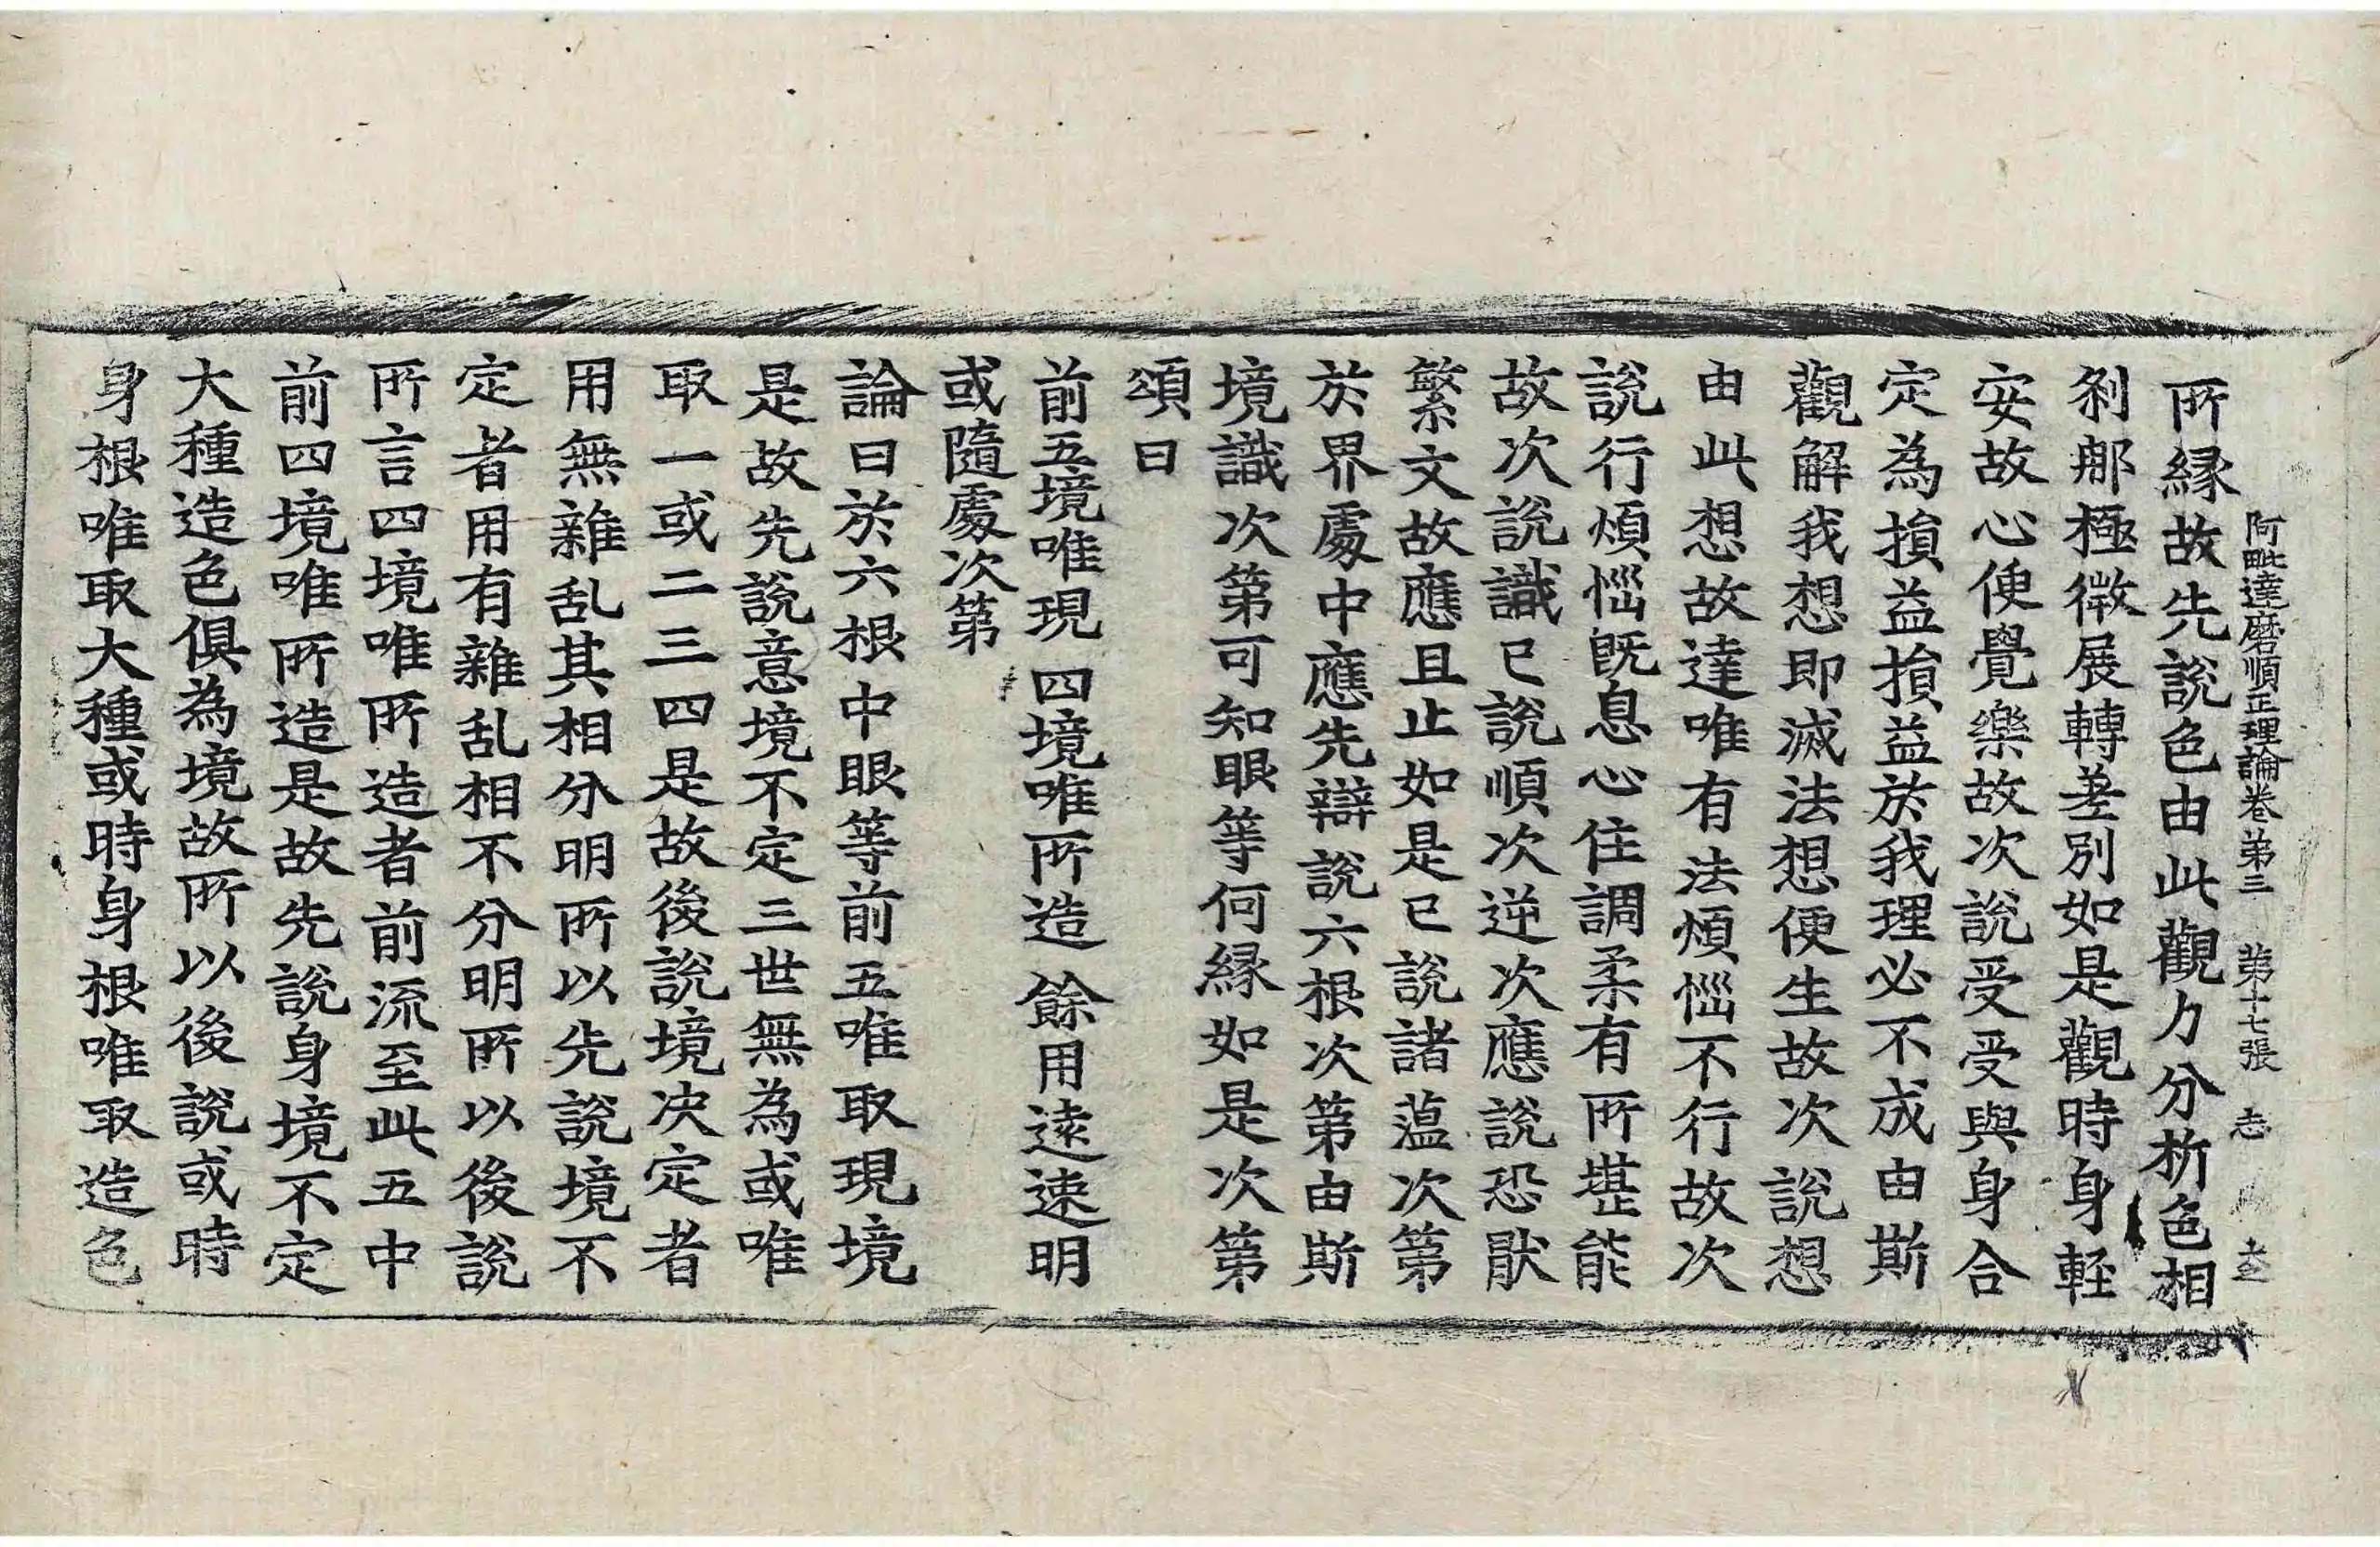 阿毗達磨順正理論卷第三 第十七張 志
所縁故先說色由此觀力分析色相
剎那極微展轉差別如是觀時身輕
安故心便覺樂故次說受受與身合
定為損益損益於我理必不成由斯
觀解我想即滅法想便生故次說想
由此想故達唯有法煩惱不行故次
說行煩惱既息心住調柔有所堪能
故次說識已說順次逆次應說恐猒
繁文故應且止如是已說諸蘊次第
於界處中應先辯說六根次第由斯
境識次第可知眼等何縁如是次第
頌曰
前五境唯現 四境唯所造 餘用遠速明
或隨處次第
論曰於六根中眼等前五唯取現境
是故先說意境不定三世無為或唯
取一或二三四是故後說境决定者
用無雜乱其相分明所以先說境不
定者用有雜乱相不分明所以後說
所言四境唯所造者前流至此五中
前四境唯所造是故先說身境不定
大種造色俱為境故所以後說或時
身根唯取大種或時身根唯取造色